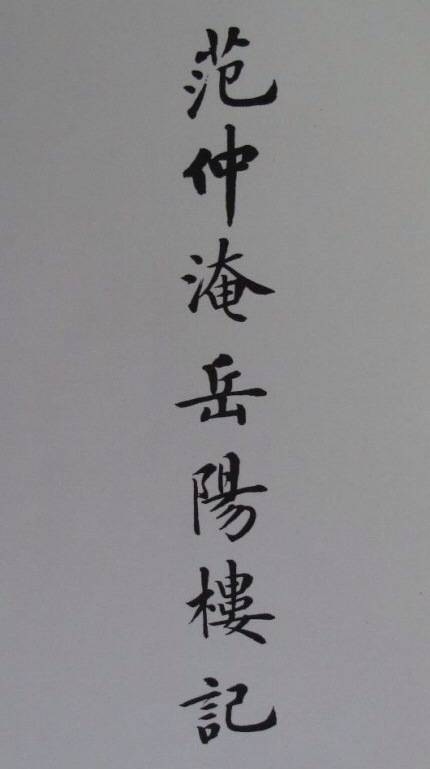 范仲淹岳陽樓記